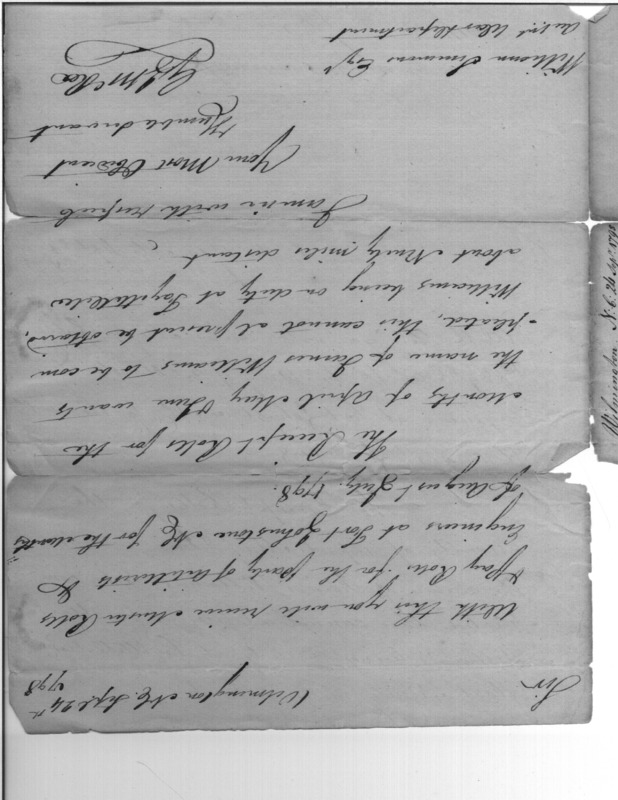 Sir
Wilmington NC. Sept. 24th
1798
With this you will receive Muster Rolls
& Pay Rolls for the party of Artillerists &
Engineers at Fort Johnstone NC for the Months
of August & July. 1798.
The Receipt Rolls for the
Months of April May & June wants
the name of James Williams to be com
-pleated, this cannot at present be obtained,
Williams being on duty at Fayetteville
about Ninety miles distant.
I am sir with respect
Your Most Obedient
Humble Servant
McRea
William Simmons Esqr
Acct War Department
Wilmington N.C. 24 Sept. 1798